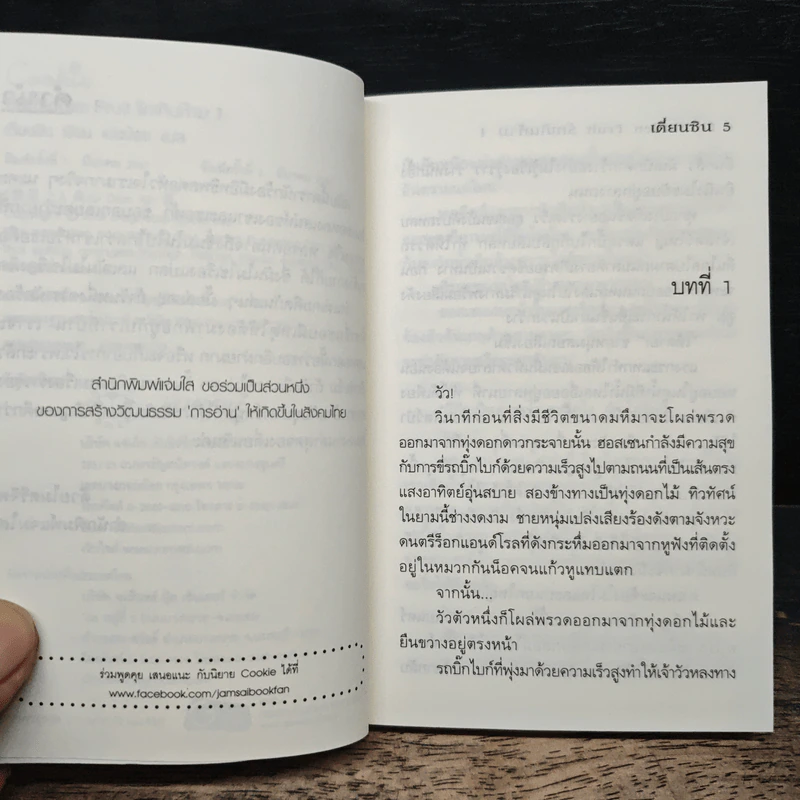 สำนักพิมพ์แจ่มใส ขอร่วมเป็นส่วนหนึ่ง
ของการสร้างวัฒนธรรม 'การอ่าน' ให้เกิดขึ้นในสังคมไทย
ร่วมพูดคุย เสนอแนะ กับนิยาย Cookie ได้ที่
www.facebook.com/jamsaibookfan
เตี่ยนซิน 5
บทที่ 1
วัว!
วินาทีก่อนที่สิ่งมีชีวิตขนาดมหึมาจะโผล่พรวด
ออกมาจากทุ่งดอกดาวกระจายนั้น ฮอสเซนกำลังมีความสุข
กับการขี่รถบิ๊กไบก์ด้วยความเร็วสูงไปตามถนนที่เป็นเส้นตรง
แสงอาทิตย์อุ่นสบาย สองข้างทางเป็นทุ่งดอกไม้ ทิวทัศน์
ในยามนี้ช่างงดงาม ชายหนุ่มเปล่งเสียงร้องดังตามจังหวะ
ดนตรีร็อกแอนด์โรลที่ดังกระหึ่มออกมาจากหูฟังที่ติดตั้ง
อยู่ในหมวกกันน็อคจนแก้วหูแทบแตก
จากนั้น...
วัวตัวหนึ่งก็โผล่พรวดออกมาจากทุ่งดอกไม้และ
ยืนขวางอยู่ตรงหน้า
รถบิ๊กไบก์ที่พุ่งมาด้วยความเร็วสูงทำให้เจ้าวัวหลงทาง